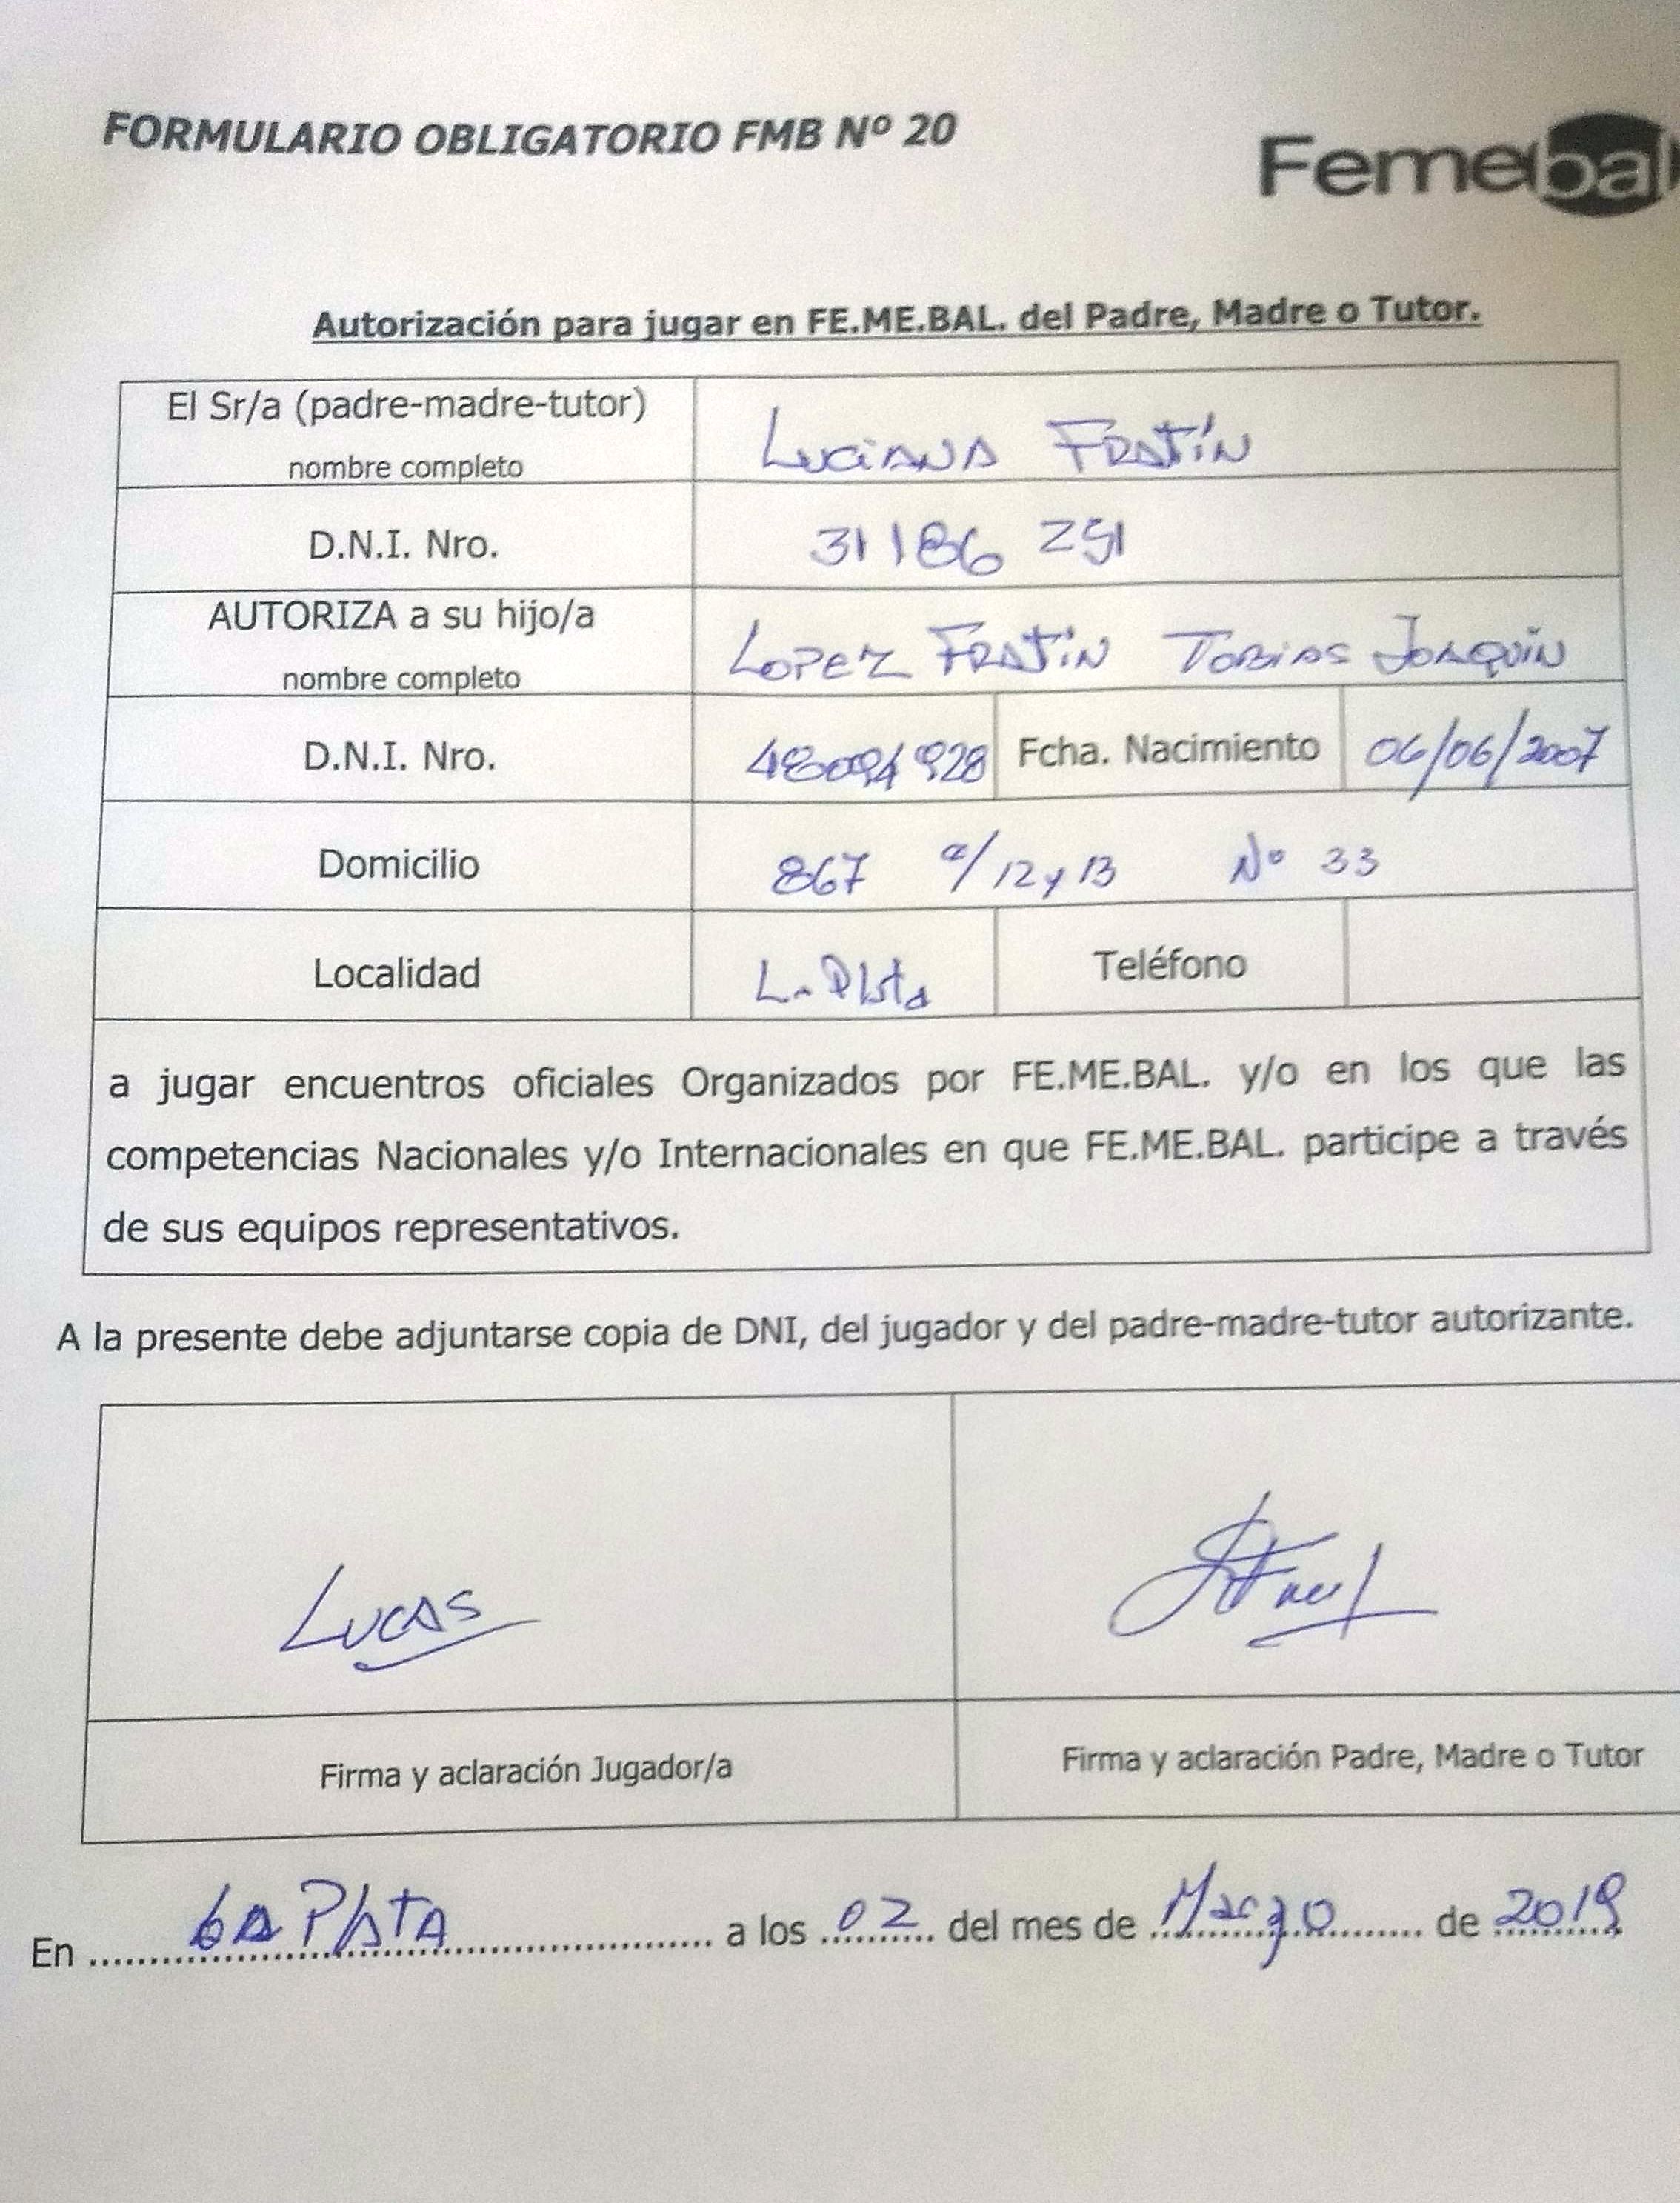 FORMULARIO OBLIGATORIO FMB Nº 20
Femebal
Autorización para jugar en FE.ME.BAL. del Padre, Madre o Tutor.
El Sr/a (padre-madre-tutor)
nombre completo
Luciana Fratín
D.N.I. Nro.
31186 251
AUTORIZA a su hijo/a
nombre completo
Lopez Fratín Tobias Joaquín
D.N.I. Nro.
48094928
Fcha. Nacimiento
06/06/2007
Domicilio
867 e/12 y 13 Nº 33
Localidad
La Plata
Teléfono
a jugar encuentros oficiales Organizados por FE.ME.BAL. y/o en los que las
competencias Nacionales y/o Internacionales en que FE.ME.BAL. participe a través
de sus equipos representativos.
A la presente debe adjuntarse copia de DNI, del jugador y del padre-madre-tutor autorizante.
Lucas
Firma y aclaración Jugador/a
Firma y aclaración Padre, Madre o Tutor
En La Plata a los 02 del mes de Marzo de 2019